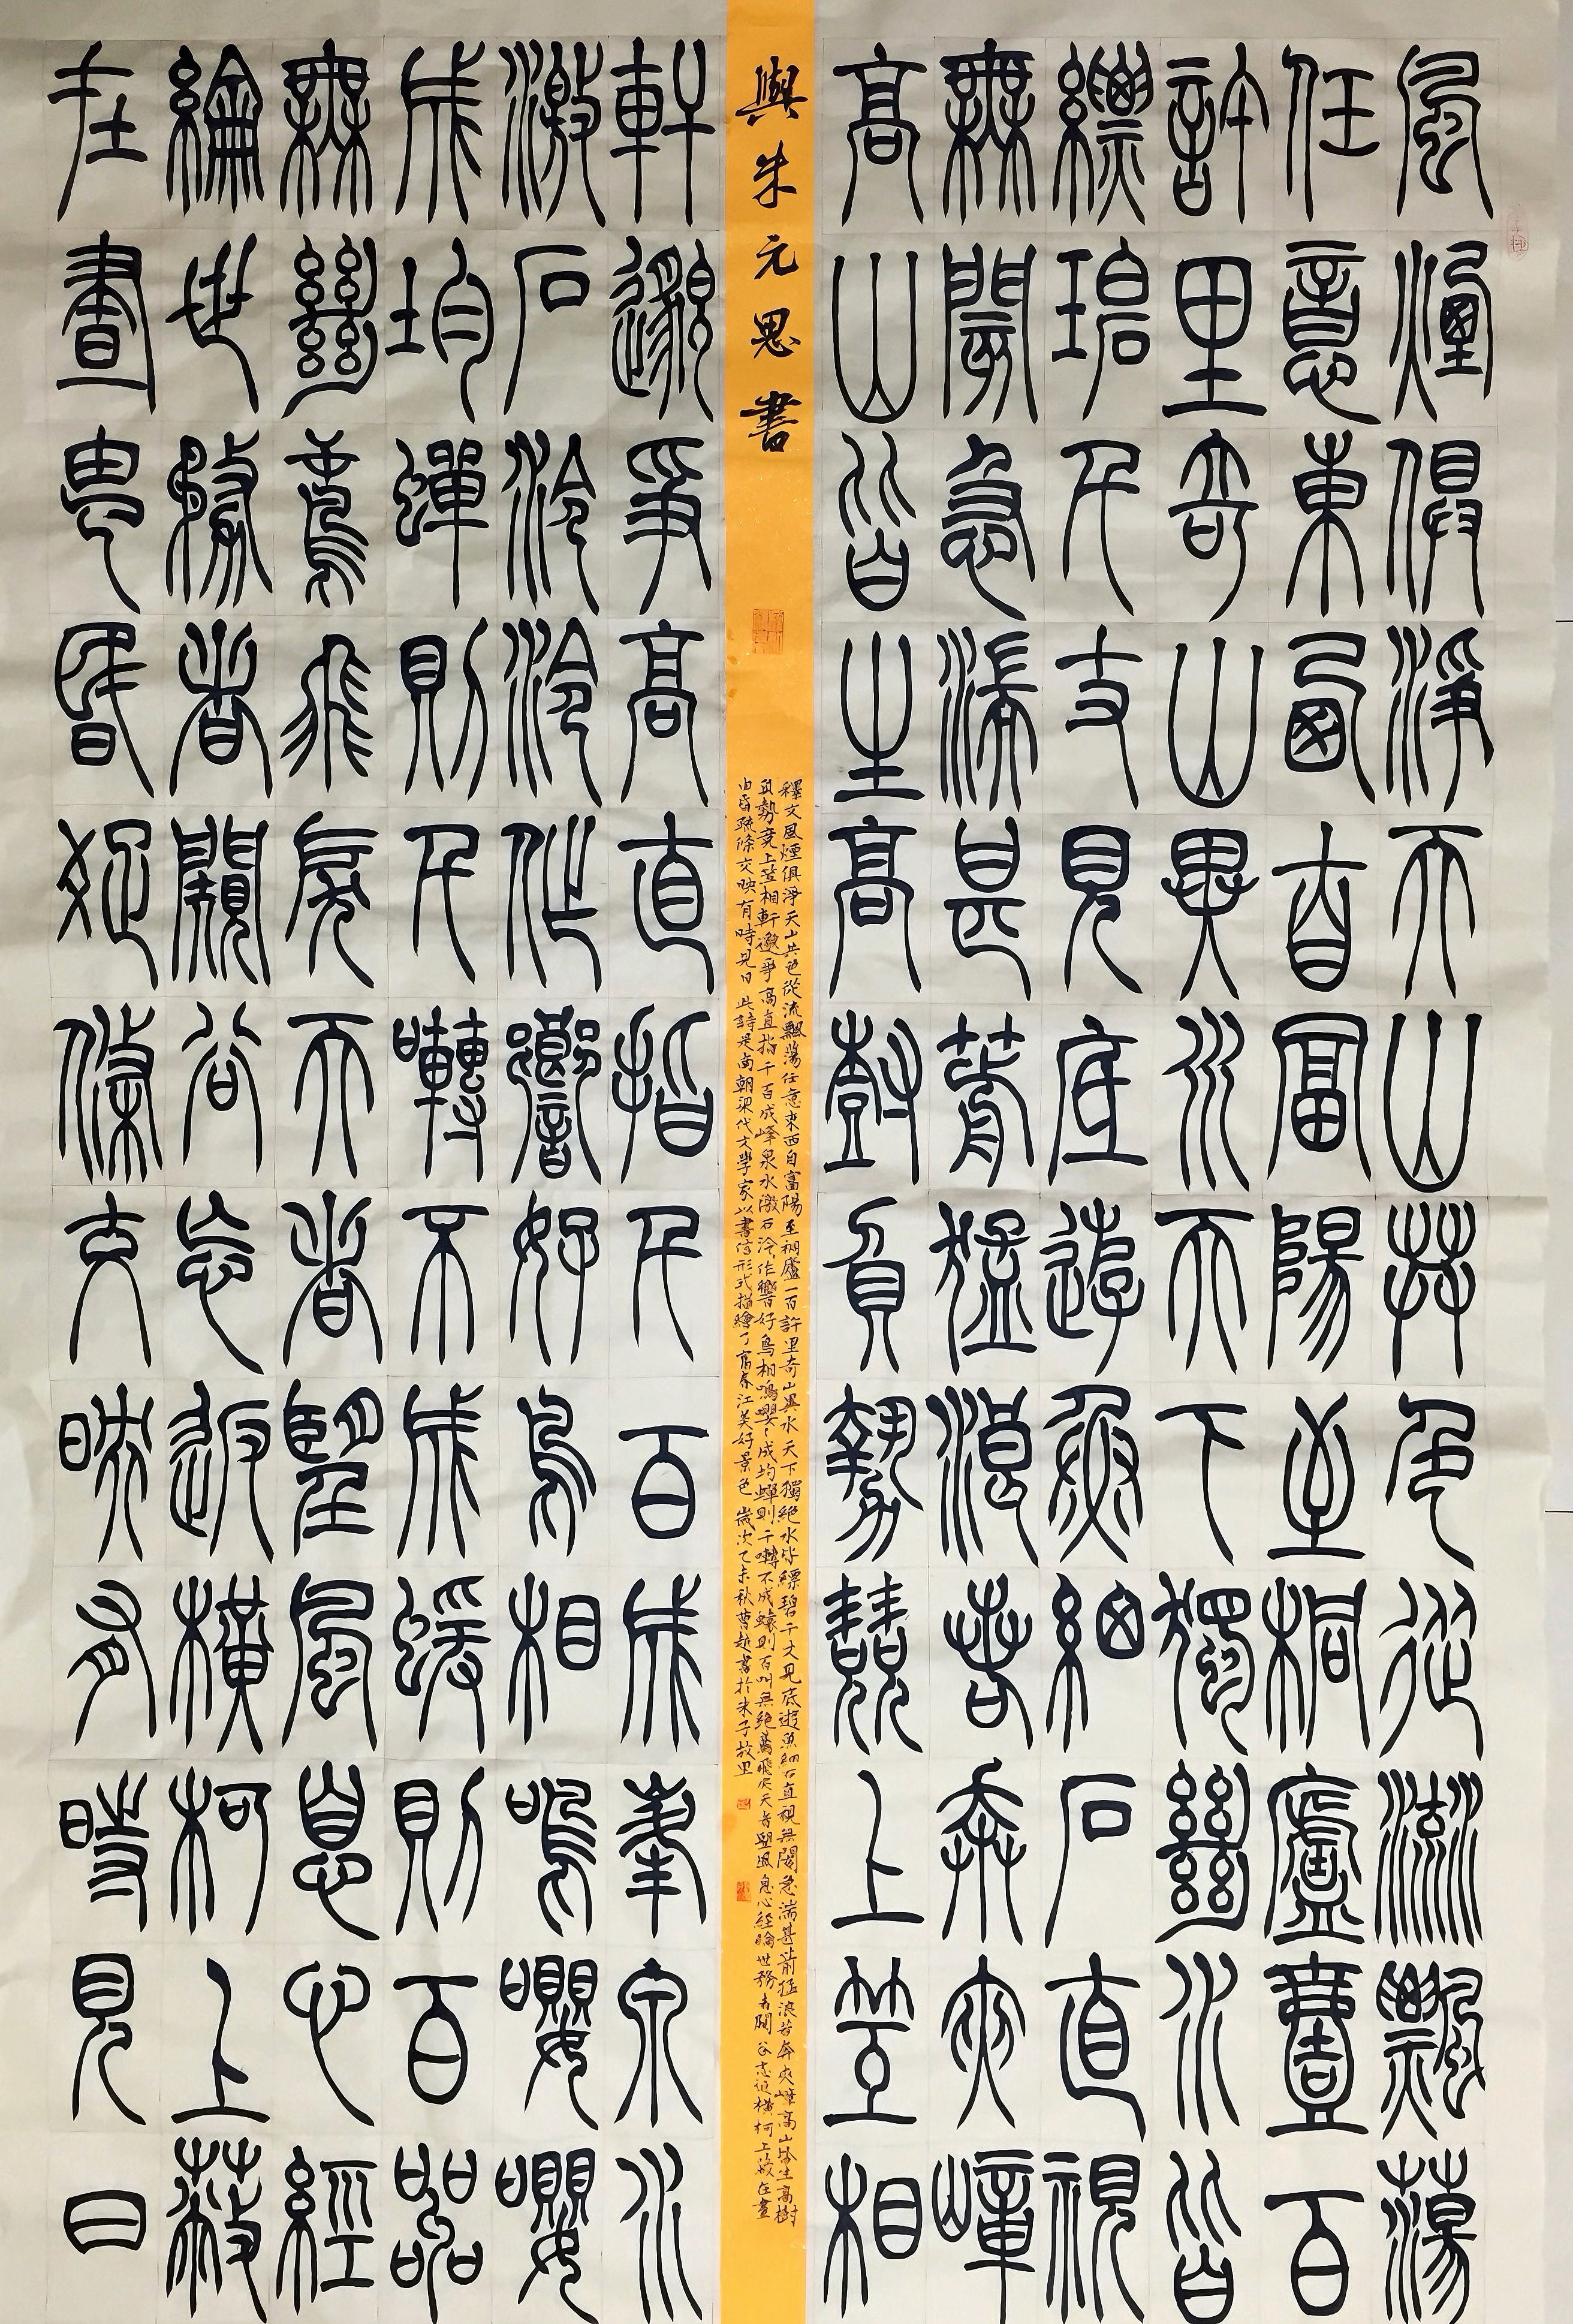 風煙俱淨天山共色從流飄蕩
任意東西自富陽至桐廬壹百
許里奇山異水天下獨絕水皆
縹碧千丈見底遊魚細石直視
無閡急湍甚箭猛浪若奔夾嶂
高山皆生高樹負勢競上互相
與朱元思書
釋文風煙俱淨天山共色從流飄蕩任意東西自富陽至桐廬一百許里奇山異水天下獨絕水皆縹碧千丈見底遊魚細石直視無閡急湍甚箭猛浪若奔夾嶂高山皆生高樹
負勢競上互相軒邈爭高直指千百成峰泉水激石泠泠作響好鳥相鳴嚶嚶成均蟬則千囀不成蝯則百叫無絕鳶飛戾天者望風息心經綸世務者闚谷忘返橫柯上蔽在晝
由昏疏條交映有時見日 此詩是南朝梁代文學家以書信形式描繪了富春江美好景色 歲次乙未秋曹越書於朱子故里
軒邈爭高直指千百成峯泉水
激石泠泠作響好鳥相鳴嚶嚶
成均蟬則千囀不成蝯則百叫
無絕鳶飛戾天者望風息心經
綸世務者闚谷忘返橫柯上蔽
在晝由昏疏條交映有時見日